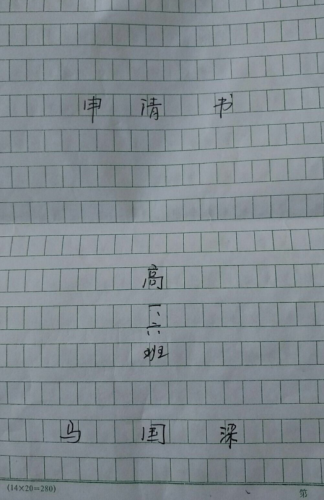 申请书
高
一、
六
班
马国深
(14×20=280) 第